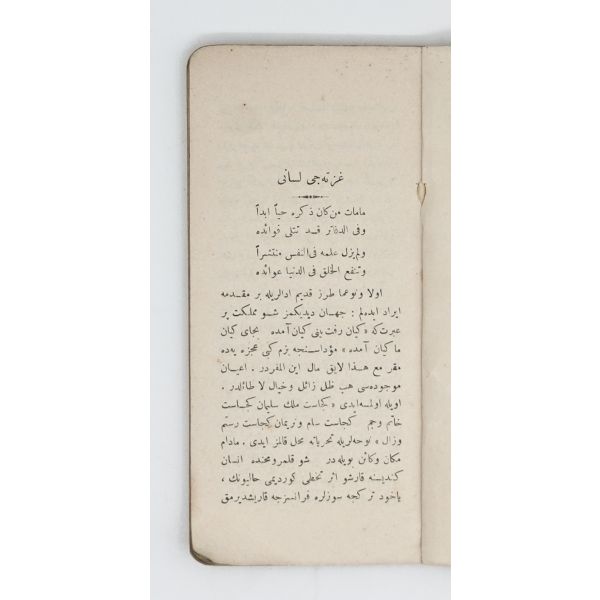 غزته جی لسانی
مامات من كان ذكره حياً ابداً
وفی الدفاتر قد تتلی فوائده
ولم يزل علمه فی النفس منتشراً
وتنفع الخلق فی الدنيا عوائده
اولا ونوعما طرز قديم ادالريله بر مقدمه
ايراد ايده‌لم : جهان ديديكمز شو مملكت پر
عبرت كه « كيان رفت بنی كيان آمده بجای كيان
ماكيان آمده » مؤداسنجه بزم كبی عجزه يه‌ده
مقر مع هذا لابق مال اين المفردر . اعيان
موجوده‌سی هب ظل زائل وخيال لا طائلدر .
اويله اولمسه‌ايدی « كجاست ملك سليمان كجاست
خاتم وجم كجاست سام ونريمان كجاست رستم
وزال » نوحه‌لريله تحرياته محل قالمز ايدی . مادام
مكان وكائن بويله‌در شو قلمرو محنده انسان
كنديسنه قارشو اثر تخطی كورديمی حاليونك ،
ياخود تركجه سوزلره فرانسزجه قاريشديرمق